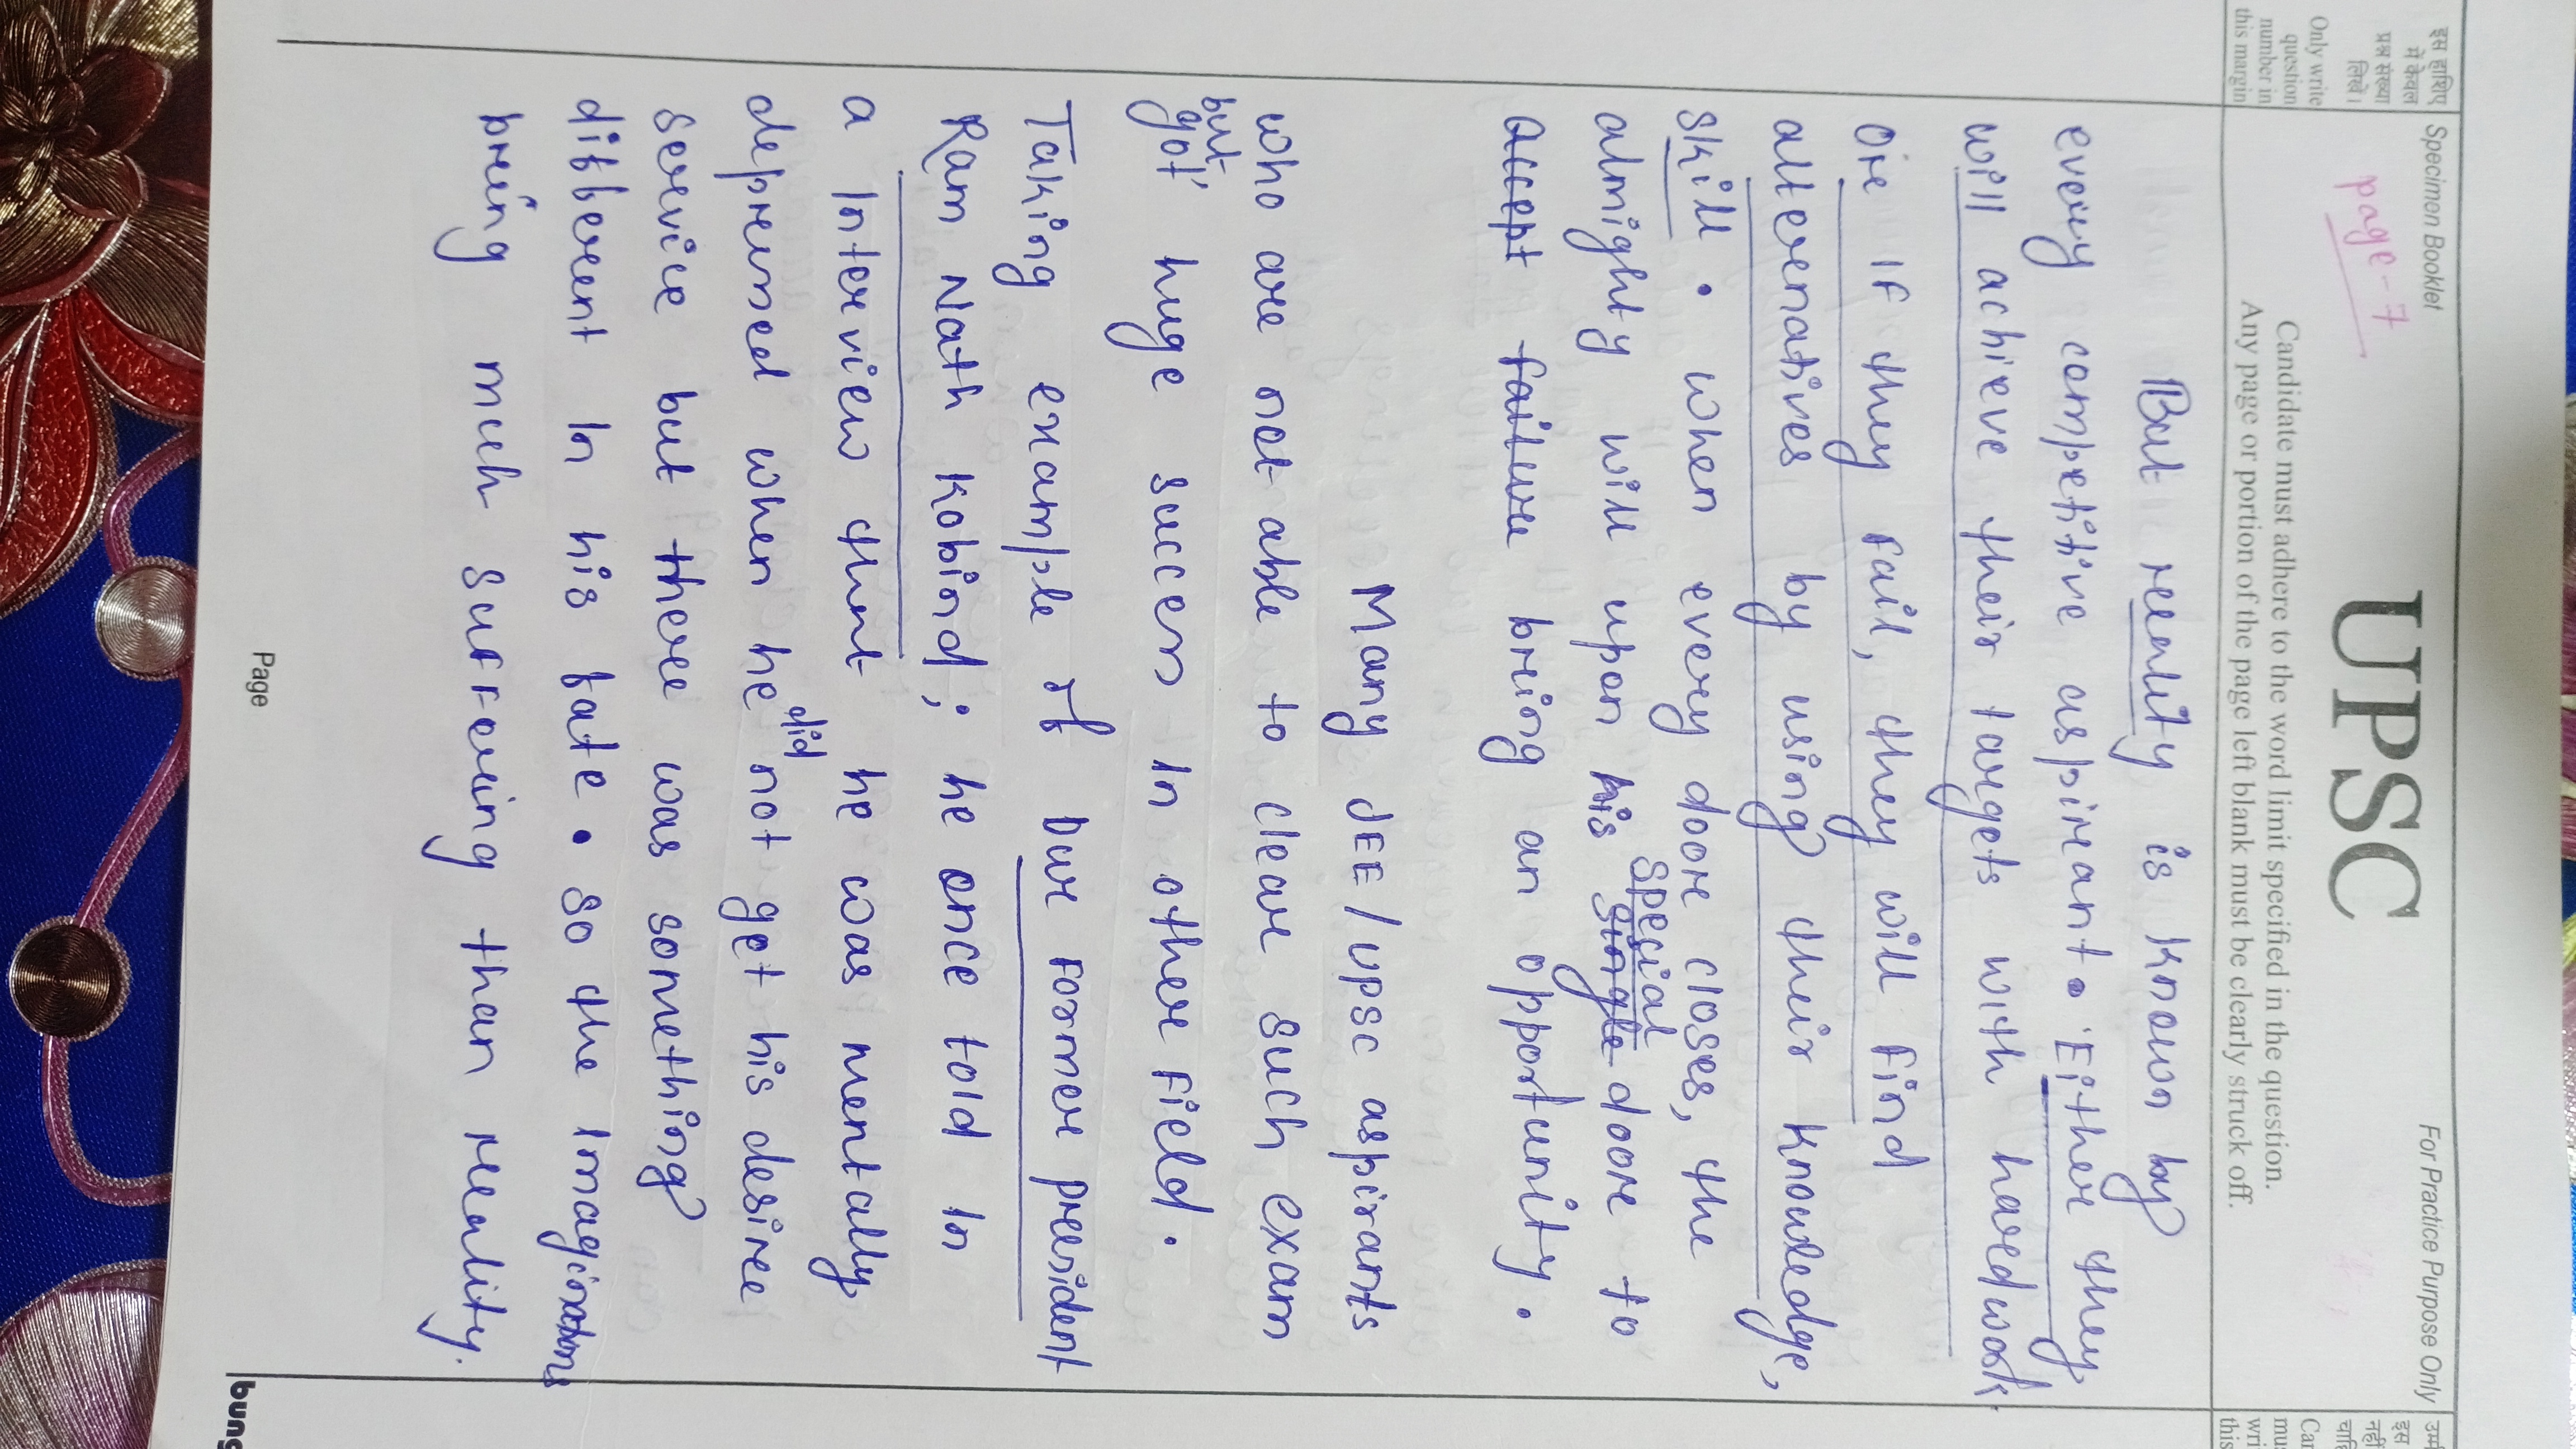 इस हाशिए
में केवल
प्रश्न संख्या
लिखें।
Only write
question
number in
this margin
Specimen Booklet
page-7
UPSC
For Practice Purpose Only
Candidate must adhere to the word limit specified in the question.
Any page or portion of the page left blank must be clearly struck off.
उम्मी
इस
नहीं
चाहि
Can
mus
wri
this
But reality is known by
every competitive aspirant. Either they
will achieve their targets with hardwork
or if they fail, they will find
alternatives by using their knowledge,
skill. When every door closes, the
special
almighty will upon his single door to
accept failure bring an opportunity.
Many JEE/UPSC aspirants
who are not able to clear such exam
but
got huge success in other field.
Taking example of our former president
Ram Nath Kobind; he once told in
a interview that he was mentally
did
depressed when he not get his desire
service but there was something
different in his fate. So the imaginations
bring much suffering than reality.
Page
bung